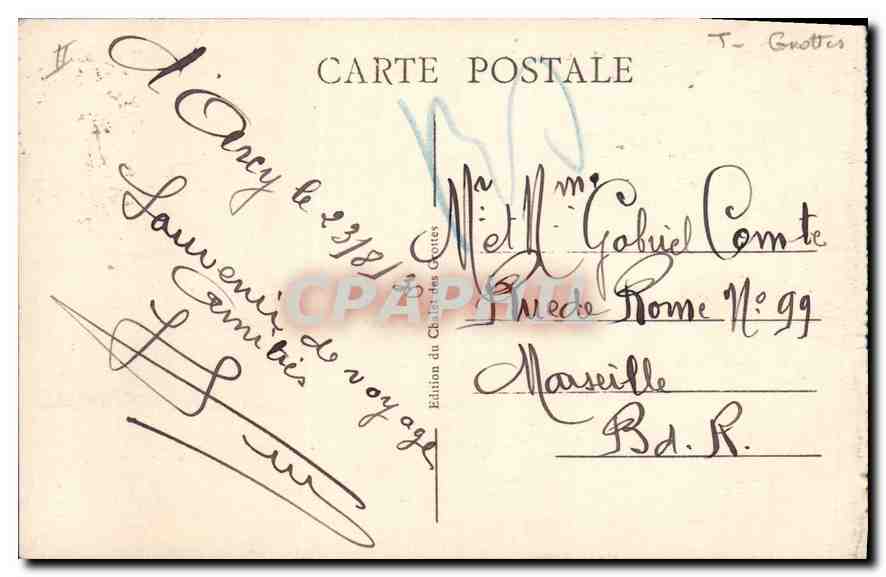 II
T- Grottes
CARTE POSTALE
d'Arcy le 23/8/30
Souvenir de voyage
Amitiés
Edition du Chalet des Grottes
Mr et Mme Gabriel Comte
Rue de Rome N° 99
Marseille
Bd. R.
CPAPHIL